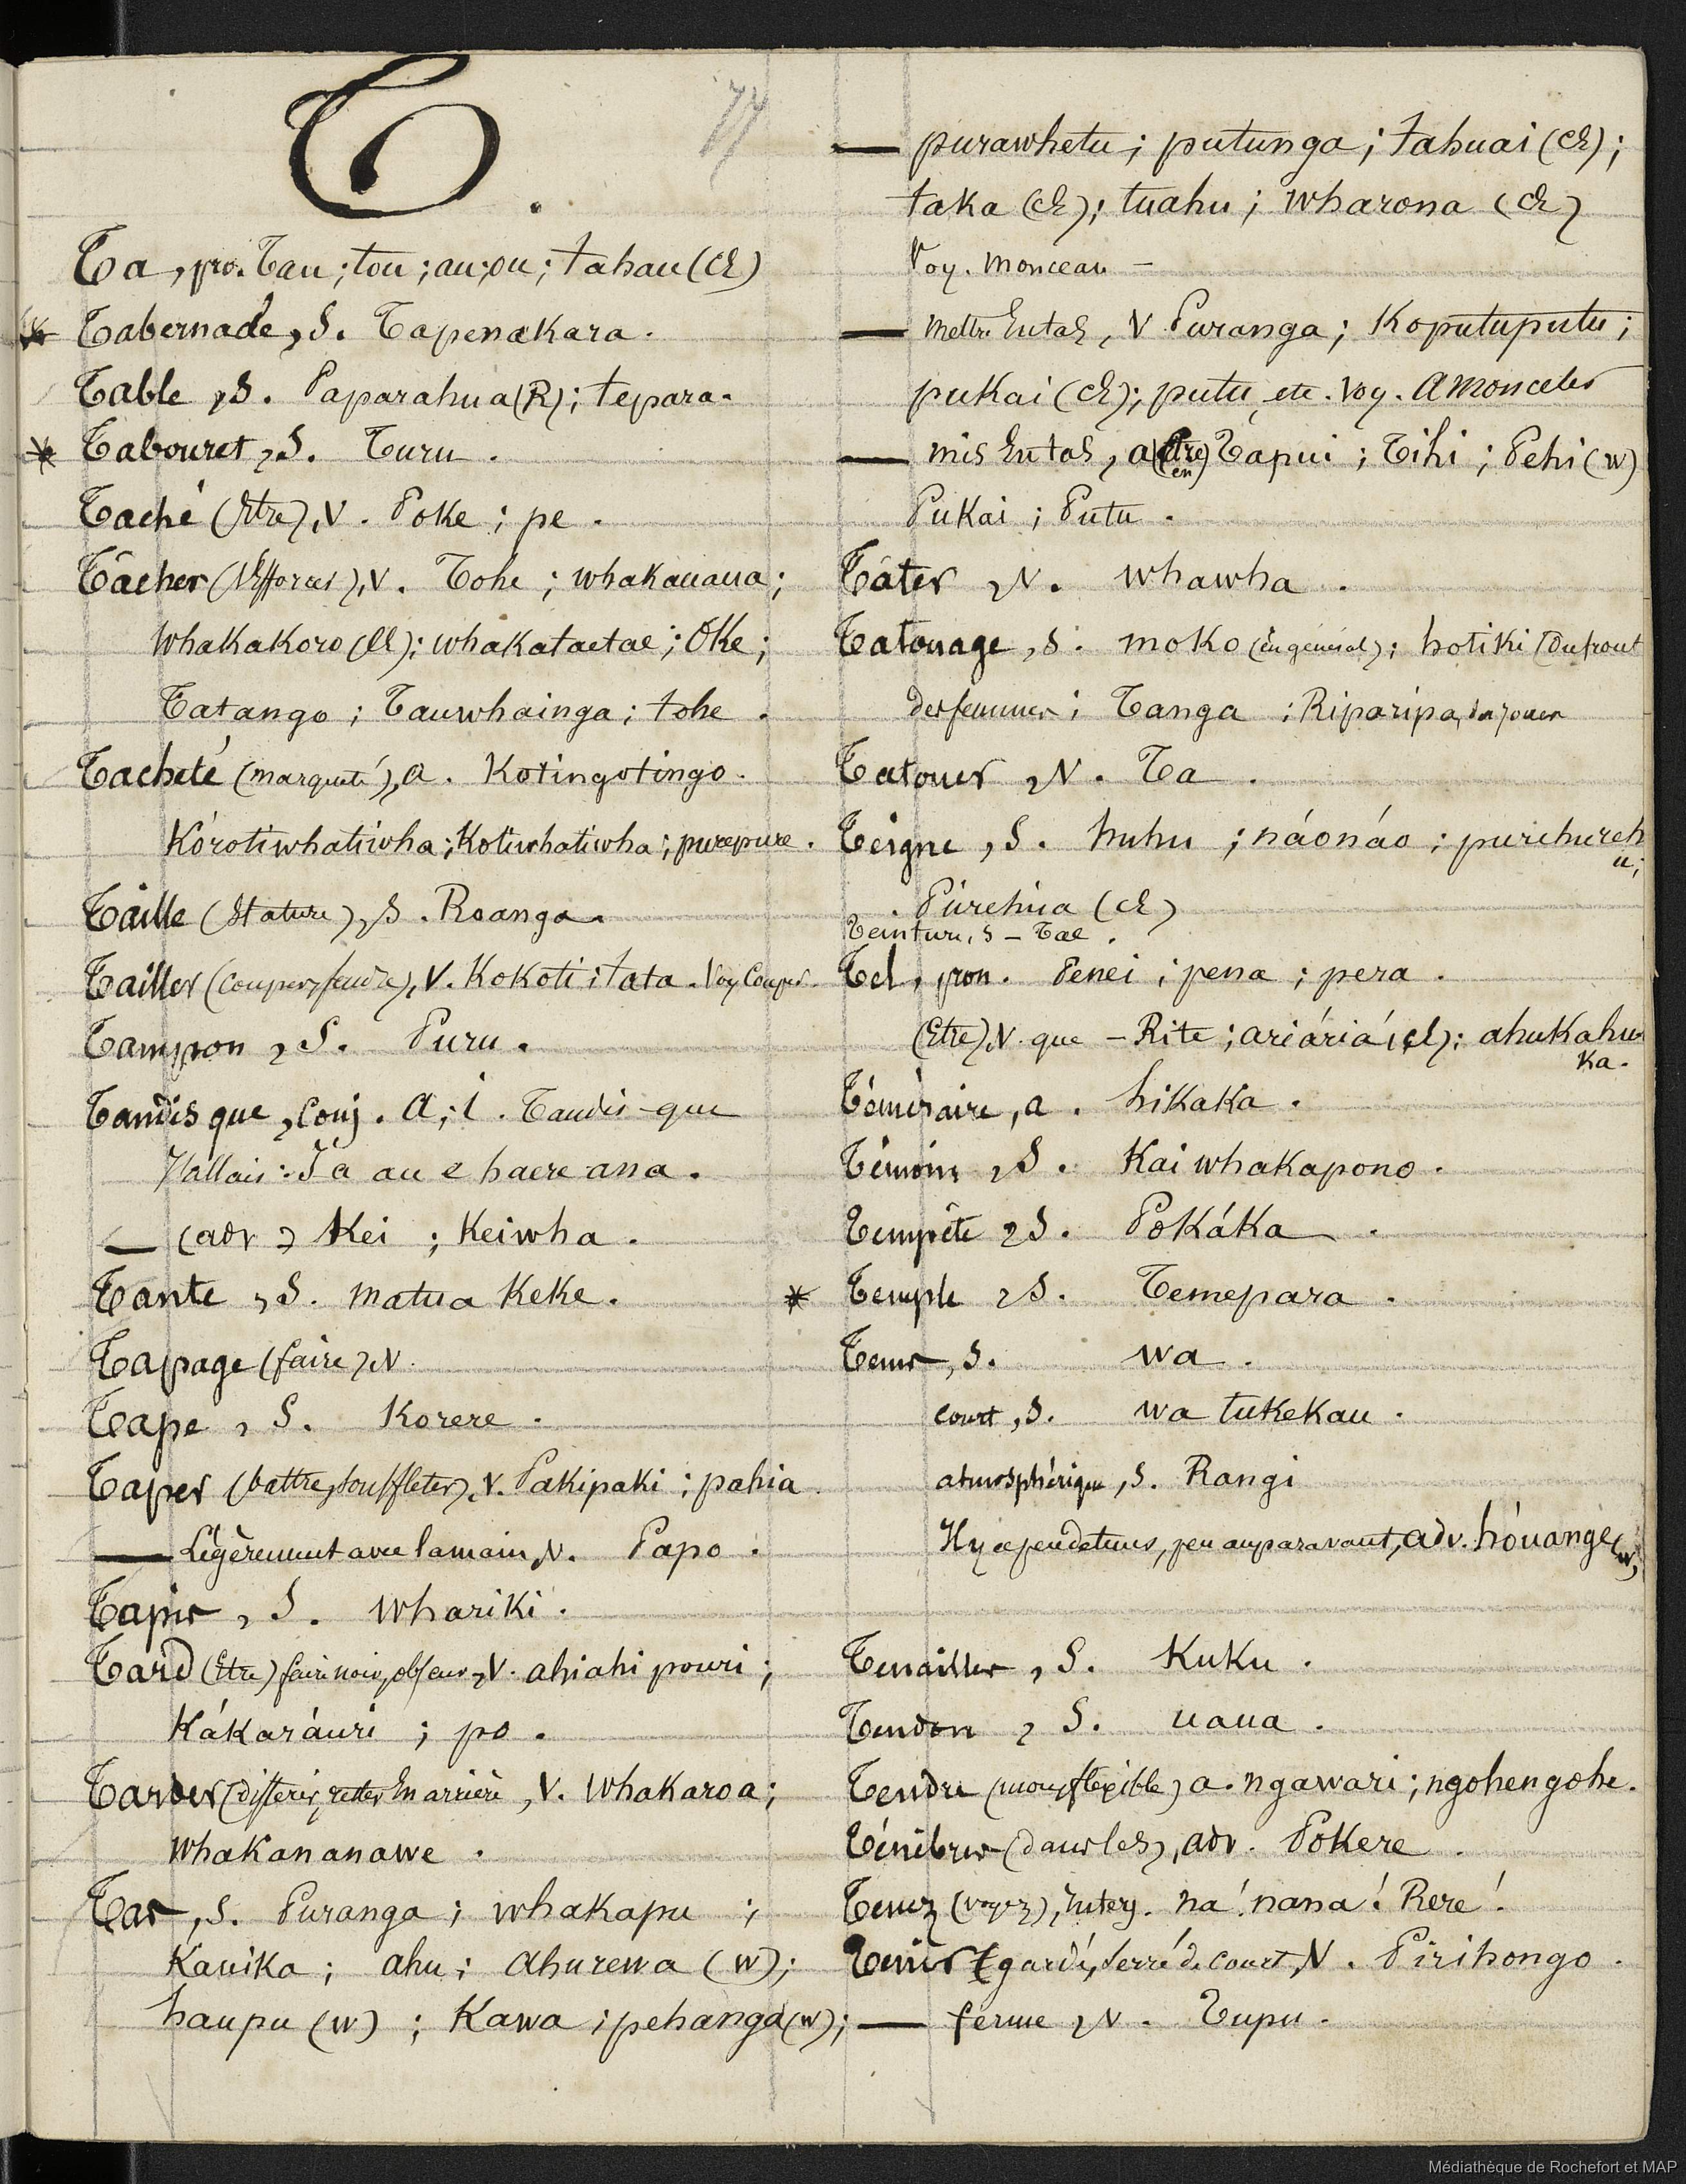 T.
77
Ta, pro. Tau; tou; au; ou; tahau (Ch)
* Tabernade, S. Tapenakara.
Table, S. Paparahua (R); tepara.
* Tabouret, S. Turu.
Taché (Etre), V. Poke; pe.
Tâcher (s'Efforcer), V. Tohe; whakauaua;
whakakoro (Ch); whakataetae; Oke;
Tatango; Tauwhainga; tohe.
Tacheté (marqueté), a. Kotingotingo.
Kórotiwhatiwha; Kotiwhatiwha; purepure.
Taille (Stature), S. Roanga.
Tailler (Couper, fendre), V. Kokoti; tata. Voy Couper.
Tampon, S. Puru.
Tandis que, Conj. A; i. Tandis que
J'allais: I a au e haere ana.
— (adv) Kei; Keiwha.
Tante, S. matua Keke.
Tapage (faire), V.
Tape, S. Korere.
Taper (battre, souffleter), V. Pakipaki; pahia.
— Légèrement avec la main, V. Papo.
Tapis, S. whariki.
Tard (Etre) faire noir, obscur, V. ahiahi pouri;
Kákaráuri; po.
Tarder (différer, rester En arrière, V. whakaroa;
whakananawe.
Tas, S. Puranga; whakapu;
Kauika; ahu; Ahurewa (w);
haupu (w); Kawa; pehanga (w);
— purawhetu; putunga; tahuai (Ch);
taka (Ch); tuahu; wharona (Ch)
Voy. Monceau —
— Mettre En tas, V Puranga; Koputuputu;
pukai (Ch); putu, etc. Voy. Amonceler
— mis En tas, a (Etre en) Tapui; Tihi; Pehi (w)
Pukai; Putu.
Tâter, V. whawha.
Tatouage, S. moko (En général); hotiki (Du front
des femmes; Tanga; Riparipa, des joues
Tatouer, V. Ta.
Teigne, S. huhu; náonáo; purehureh
u;
Púrehua (Ch)
Teinture, S — Tae.
Tel, pron. Penei; pena; pera.
(Etre), V. que — Rite; ariáriá (Ch); ahukahu
ka.
Téméraire, a. hikaka.
Témoin, S. Kai whakapono.
Tempête, S. Pokáka.
* Temple, S. Temepara.
Tems, S. wa.
court, S. wa tukekau.
atmosphérique, S. Rangi
Il y a peu de tems, peu auparavant, adv. hóuange (w)
Tenailles, S. Kuku.
Tendon, S. uaua.
Tendre (mou, flexible) a. ngawari; ngohengohe.
Ténèbres (dans les), adv. Pokere.
Tenez (voyez), Interj. na! nana! Rere!
Tenir (gardé, serré de court, V. Pirihongo.
— ferme, V. Tupu.
Médiathèque de Rochefort et MAP